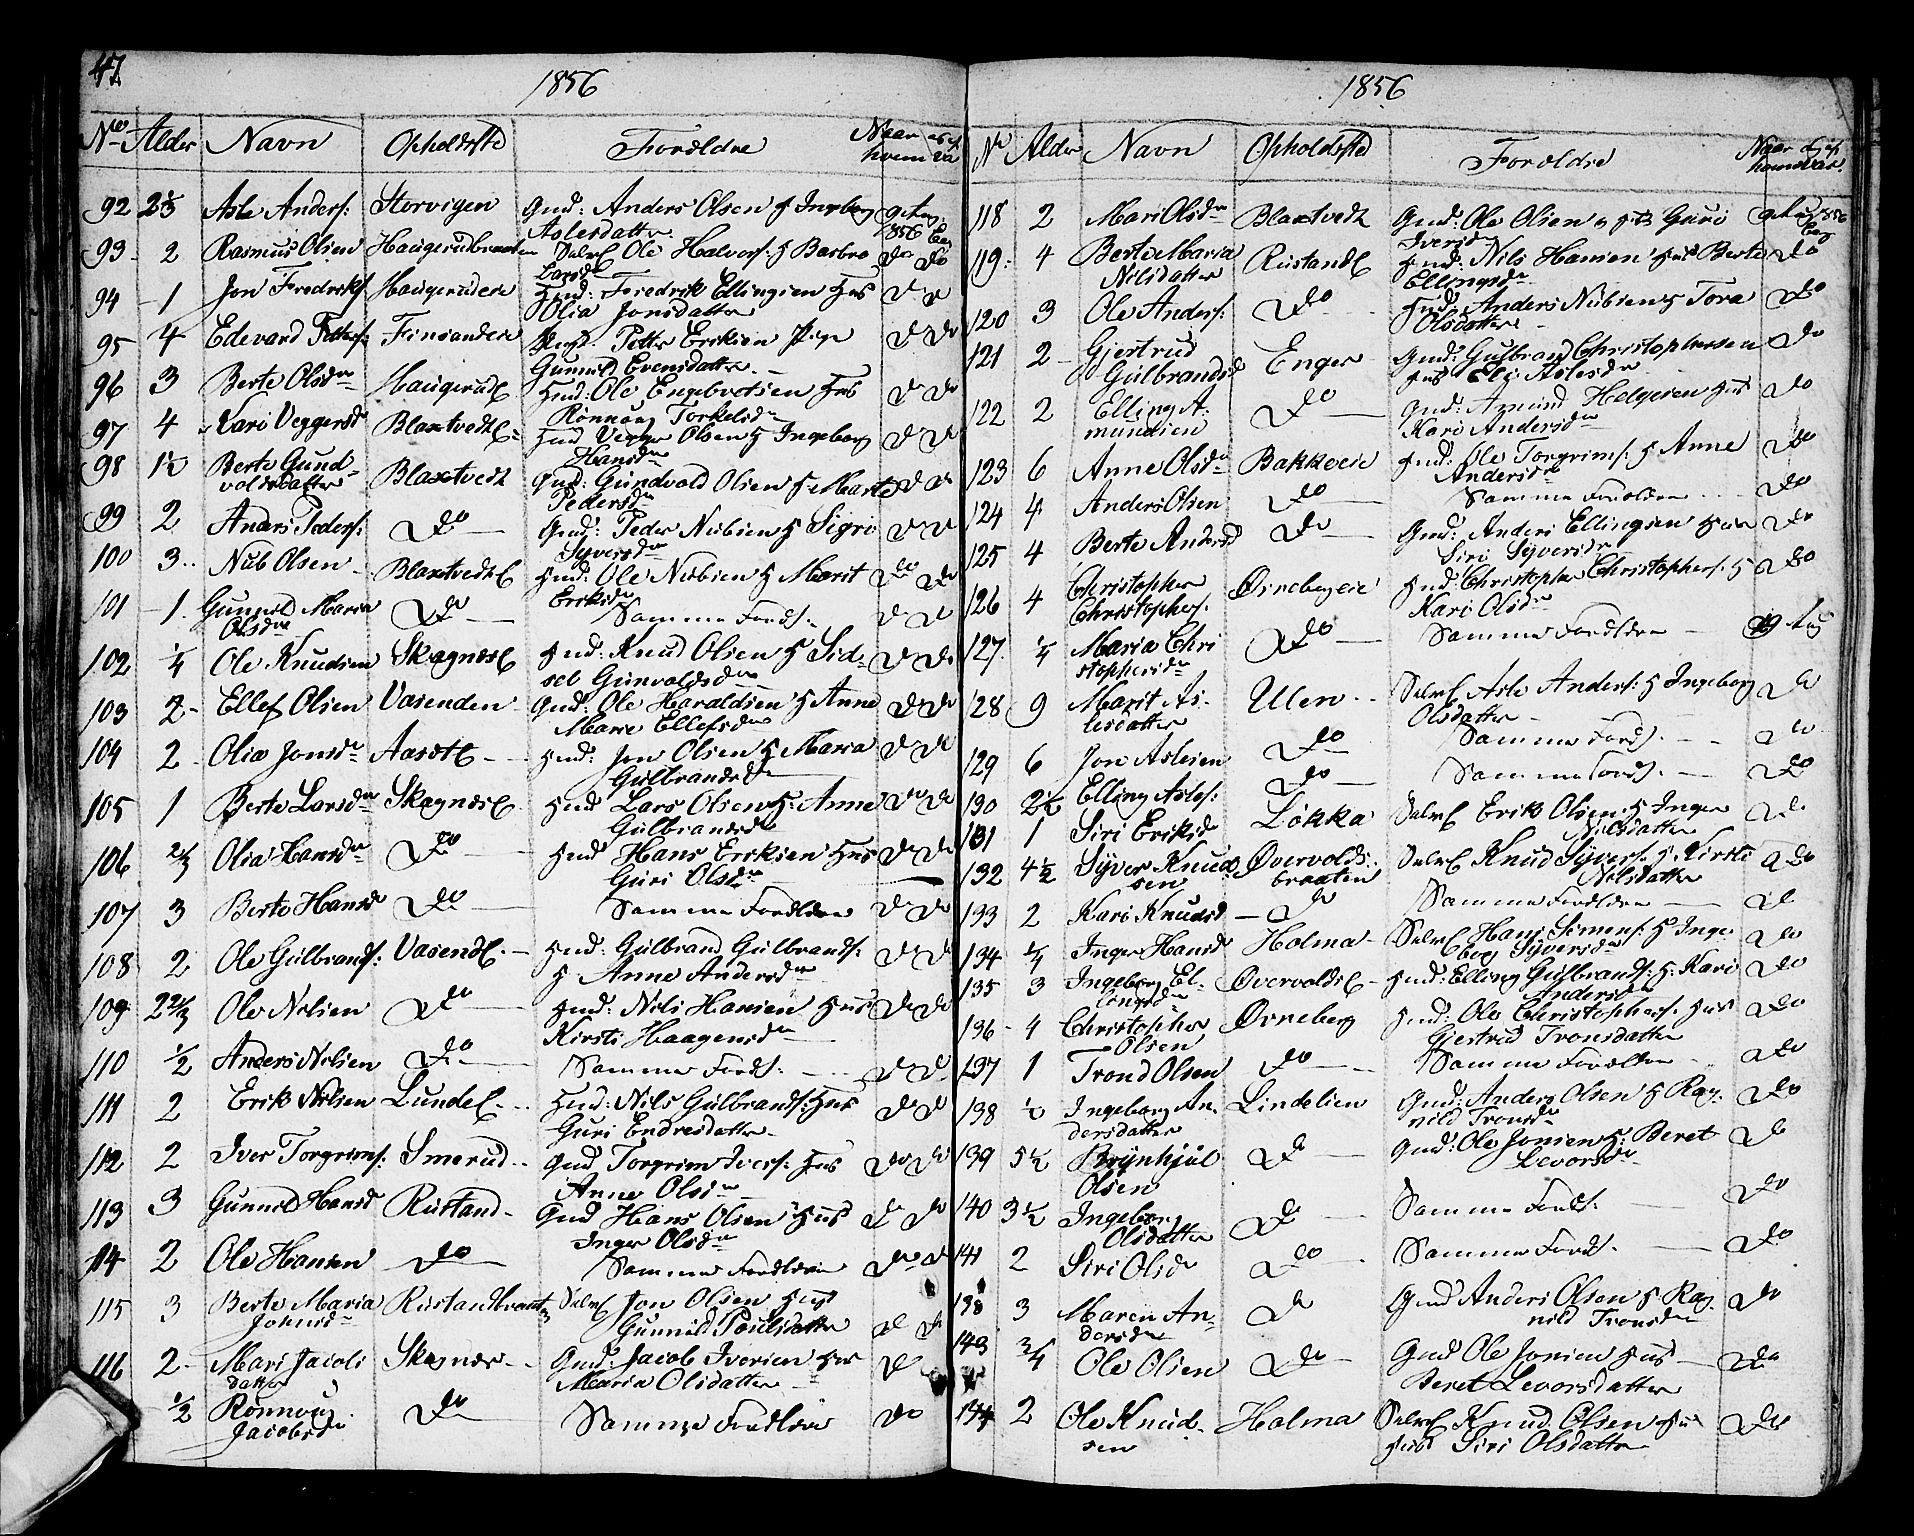 47
1856
No Alder Navn Opholdssted Forældre Naar og af hvem Va
92 2⅓ Asle Anders: Storvigen Gmd: Anders Olsen og Ingebog Aslesdatter 9 Aug: 1856
93 2 Rasmus Olsen Haugerudbraaten Selvs Ole Halvors: H Barbro Larsdr Do Do
94 1 Jon Fredriks: Haugerudeie Hmd: Fredrik Ellingsen Hus Olia Jonsdatter Do Do
95 4 Edevard Petters: Finsandeie Ungk. Petter Eriksen Pige Gunnild Evensdatter Do Do
96 3 Berte Olsdr Haugerude Hmd: Ole Engebretsen Hus Rønnoug Torkelsdr Do Do
97 4 Kari Veggersdr Blaxtvedte Hmd Olsen H Ingeborg Hansdr Do Do
98 1½ Berte Gundvoldsdatter Blaxtvedt Gmd: Gundvold Olsen H Marte Pedersdr Do Do
99 2 Anders Peders: Do Gmd: Peder Nubsen H Sigri Syversdr Do Do
100 3 Nub Olsen Blaxtvedte Hmd: Ole Nubsen H Marit Eriksdr Do Do
101 1 Gunnild Maria Olsdr Do Samme Foreds: Do Do
102 ¼ Ole Knudsen Skagnese Hmd: Knud Olsen H Sidsel Gunvoldsdr Do Do
103 2 Ellef Olsen Vasenden Gmd: Ole Haraldsen H Anne Marie Ellefsdr Do Do
104 2 Olia Jonsdr Aasete Hmd: Jon Olsen H Maria Gulbrandsdr Do Do
105 1 Berte Larsdr Skagnese Hmd Lars Olsen H: Anne Gulbrandsdr Do Do
106 ⅔ Olia Hansdr Do Hmd Hans Eriksen Hus Guri Olsdr Do Do
107 3 Berte Hansd Do Samme Forældre Do Do
108 2 Ole Gulbrands: Vasende Hmd: Gulbrand Gulbrands: H Anne Andersdr Do Do
109 2⅔ Ole Nilsen Do Hmd: Nils Hansen Hus Kirsti Haagensdr Do Do
110 ½ Anders Nilsen Do Samme Foreds: Do Do
111 2 Erik Nilsen Lunde Hmd: Nils Gulbrands: Hus Guri Endresdatter Do Do
112 2 Iver Torgrims: Smerud Gmd Torgrim Ivers: Hus Anne Olsdr Do Do
113 3 Gunnild Hansd Rustand Gmd Hans Olsen Hus Inger Olsdr Do Do
114 2 Ole Hansen Do Samme Forældre Do Do
115 3 Berte Maria Johnsdr Rustandbraaten Selvs Jon Olsen Hust Gunnild Poulsdatter Do Do
116 2 Mari Jacobsdatter Skagnes Gmd: Jacob Iversen Hus Maria Olsdatter Do
½ Rønnoug Jacobsdr Do Samme Forældre Do
1856
No Alder Navn Opholdsted Forældre Naar og af hvem Vac.
118 2 Mari Olsdr Blaxtvedt Gmd: Ole Olsen Guri Iversdr 9 Aug 1856
119 4 Berte Maria Nilsdatter Rustande Hmd: Nils Hansen Hus Berte Ellingsdr Do
120 3 Ole Anders: Do Hmd: Anders Nubsen H Tora Olsdatter Do
121 2 Gjertrud Gulbrandsd Enger Gmd: Gulbrand Christophersen Hus Eli Aslesdr Do
122 2 Elling Amundsen Do Gmd: Amund Helgesen Hus Kari Andersdr Do
123 6 Anne Olsdr Bakkeeie Hmd: Ole Torgrims: H Anne Andersdr Do
124 4 Anders Olsen Do Samme Forældre Do
125 4 Berte Andersd Do Gmd: Anders Ellingsen Hus Siri Syversdr Do
126 4 Christopher Christophers: Ørnebergeie Hmd: Christopher Christophers: H Kari Olsdr Do
127 ¼ Maria Christophersdr Do Samme Forældre 19 Aug
128 9 Marit Aslesdatter Ulen Selvs Asle Anders: H Ingeborg Olsdatter Do
129 6 Jon Aslesen Do Samme Foreds. Do
130 2½ Elling Asles: Do Samme Foreds. Do
131 1 Siri Eriksd Løkka Selvs Erik Olsen H Inger Nilsdatter Do
132 4½ Syver Knudsen Øvervoldsbraaten Selvs Knud Syvers: H Kirsti Nilsdatter Do
133 2 Kari Knudsd Do Samme Forældre Do
134 ¼ Inger Hansd Holma Selvs Hans Simens: H Ingeborg Syversdr Do
135 3 Ingeborg Ellingsdr Øvervoldse Hmd: Elling Gulbrands: H: Kari Andersdr Do
136 4 Christopher Olsen Ørneberg Hmd: Ole Christophers: Hus Gjertrud Tronsdatter Do
137 1 Trond Olsen Do Samme Forældre Do
138 ½ Ingeborg Andersdatter Lindelien Gmd: Anders Olsen H Ragnild Tronsdr Do
139 5½ Brynhjul Olsen Do Gmd: Ole Jonsen H: Beret Levorsdr Do
140 3½ Ingeborg Olsdatter Do Samme Foreds. Do
141 2 Siri Olsd Do Samme Foreds. Do
3 Maren Andersdr Do Gmd Anders Olsen H Ragnild Tronsdr Do
143 ¾ Ole Olsen Do Gmd Ole Jonsen Hus Beret Levorsdatter Do
144 2 Ole Knudsen Holma Selvs Knud Olsen Siri Olsdatter Do